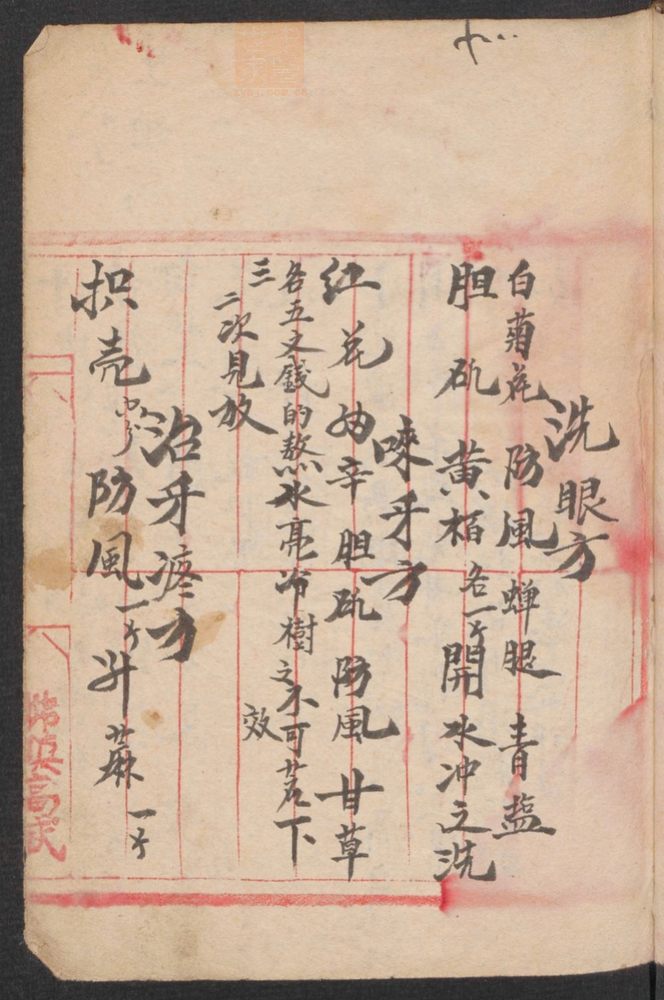 洗眼方
白菊花 防風 蟬腿 青盐
胆矾 黄栢 各一子 開水冲之洗
嗽牙方
红花 细辛 胆矾 防風 甘草
各五文錢的熬水亮冷樹之不可若下
三二次見效
放
治牙疼方
枳壳 防風 一子 升蔴 一子